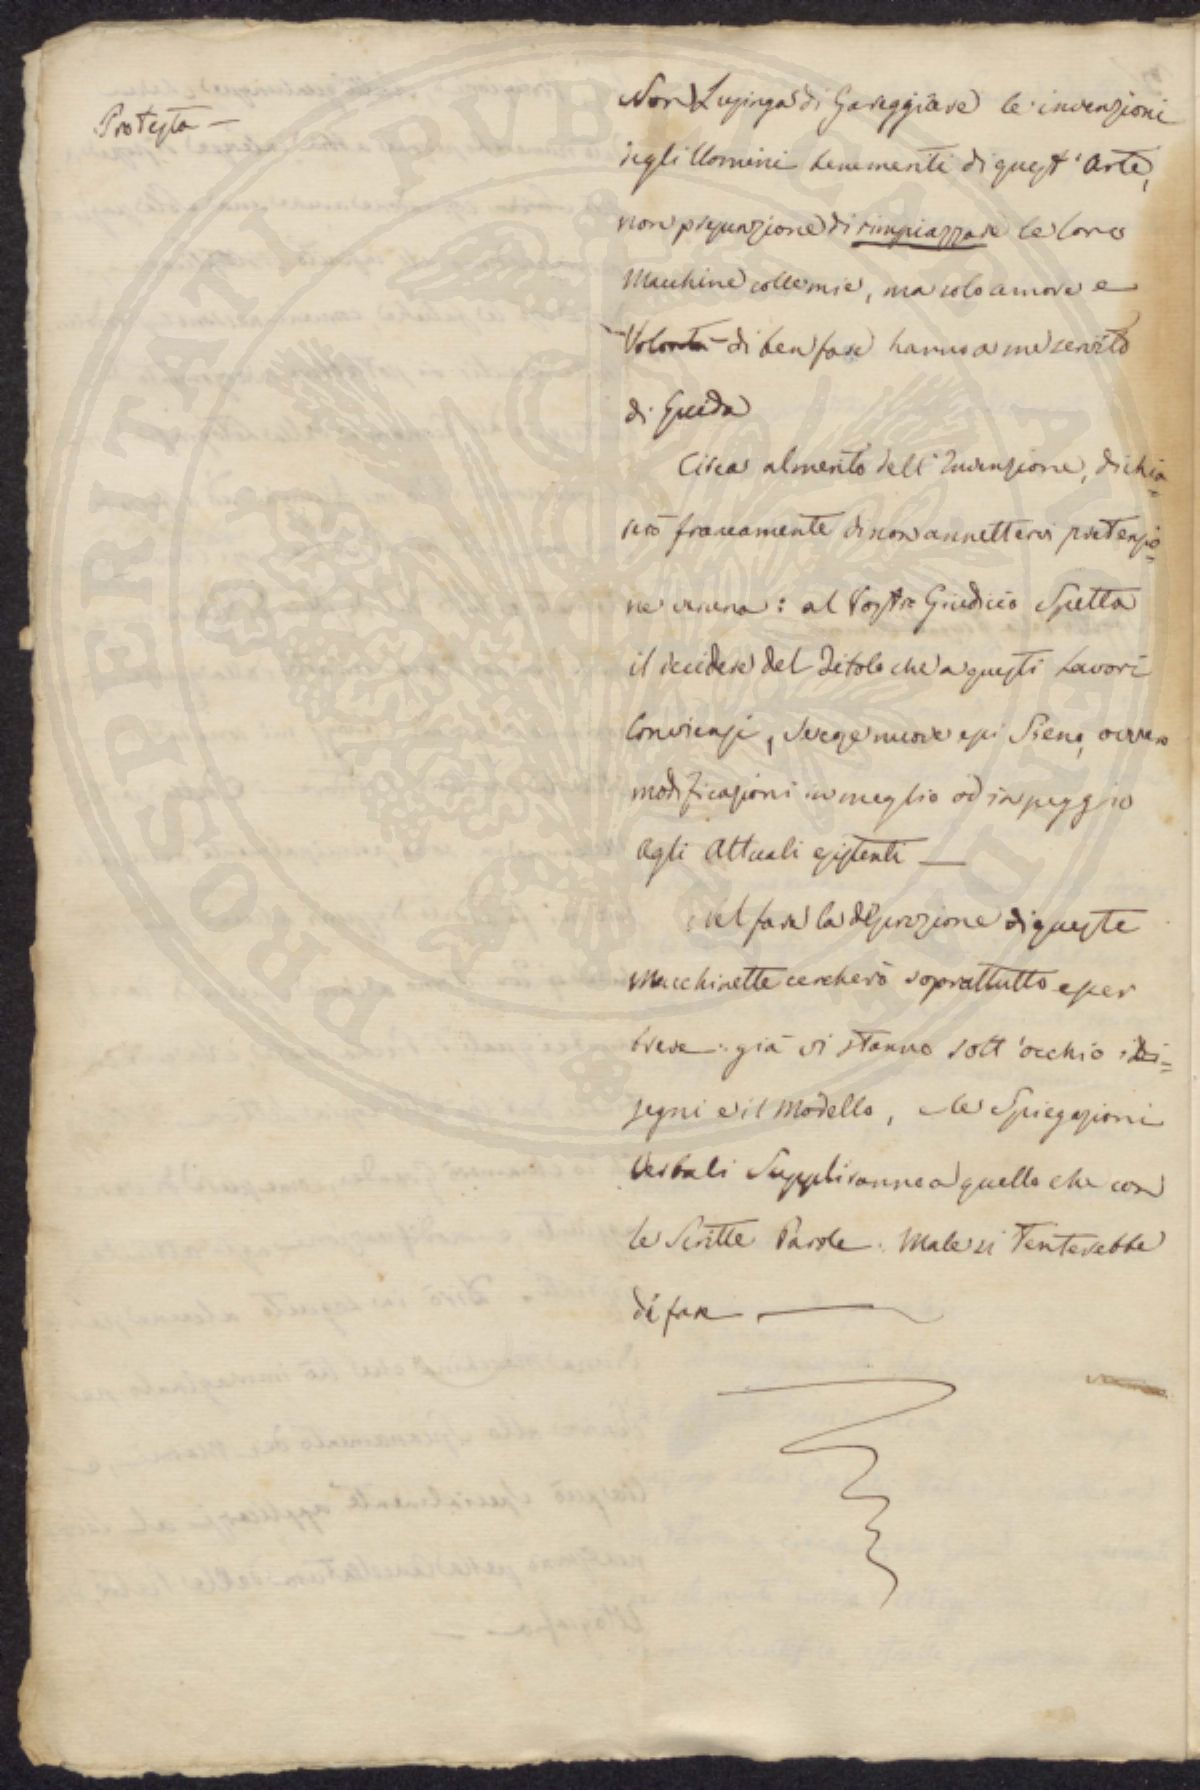 Protesta —
Non Lusinga di Gareggiare le invenzioni
degli Uomini benemeriti di quest' Arte,
non presunzione di rimpiazzare le loro
Macchine colle mie, ma solo amore e
Volontà di ben fare hanno a me servito
di Guida
Circa al merito dell' Invenzione, dichia=
rerò francamente di non annettervi pretenzio=
ne veruna: al Vostro Giudicio Spetta
il decidere del Titolo che a questi Lavori
Convengasi, se cose nuove essi Sieno, ovvero
modificazioni in meglio od in peggio
Agli Attuali esistenti —
Nel fare la descrizione di queste
Macchinette cercherò soprattutto esser
breve: già vi stanno sott'occhio i Di=
segni e il Modello, e le Spiegazioni
Verbali Suppliranno a quello che con
le Scritte Parole Male si Tenterebbe
di fare —
PROSPERITATI PUBLICAE AUGENDAE